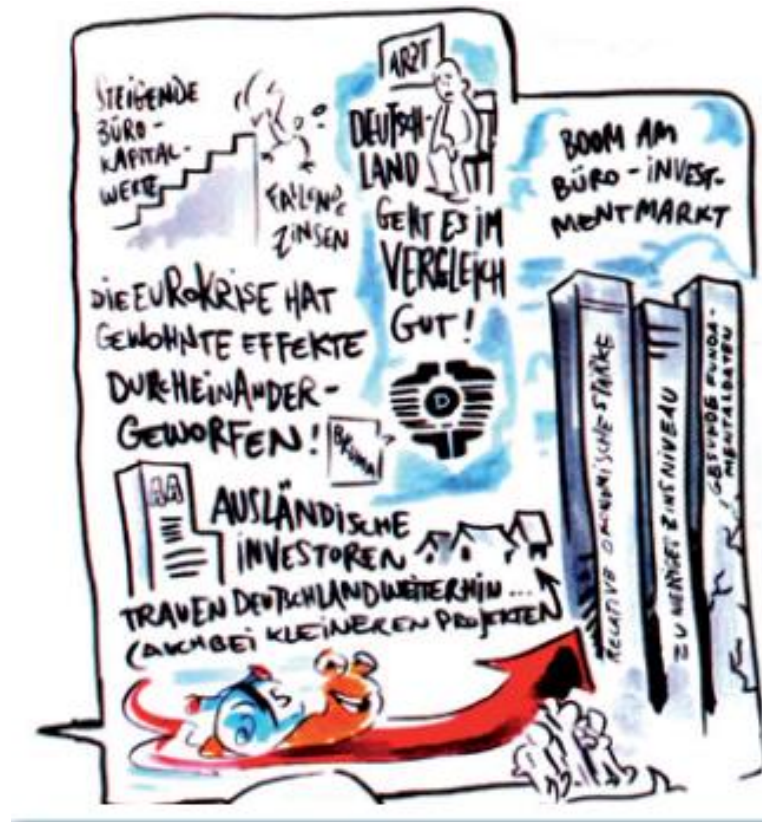 STEIGENDE
BÜRO-
KAPITAL-
WERTE
FALLENDE
ZINSEN
ARZT
DEUTSCH-
LAND
GEHT ES IM
VERGLEICH
GUT!
D
DIE EUROKRISE HAT
GEWOHNTE EFFEKTE
DURCHEINANDER-
GEWORFEN!
AA
AUSLÄNDISCHE
INVESTOREN
TRAUEN DEUTSCHLAND WEITERHIN...
(AUCH BEI KLEINEREN PROJEKTEN
BOOM AM
BÜRO-INVEST-
MENTMARKT
RELATIVE ÖKONOMISCHE STÄRKE
ZU NIEDRIGES ZINSNIVEAU
GESUNDE FUNDA-
MENTALDATEN